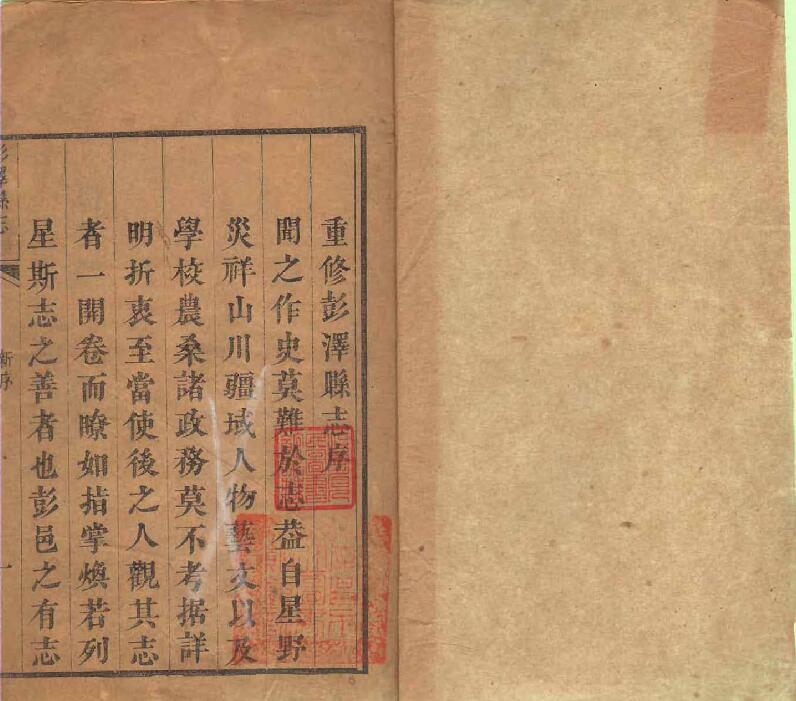 重修彭澤縣志序
聞之作史莫難於志葢自星野
災祥山川疆域人物藝文以及
學校農桑諸政務莫不考据詳
明折衷至當使後之人觀其志
者一開卷而瞭如指掌煥若列
星斯志之善者也彭邑之有志
彭澤縣志
新序
一